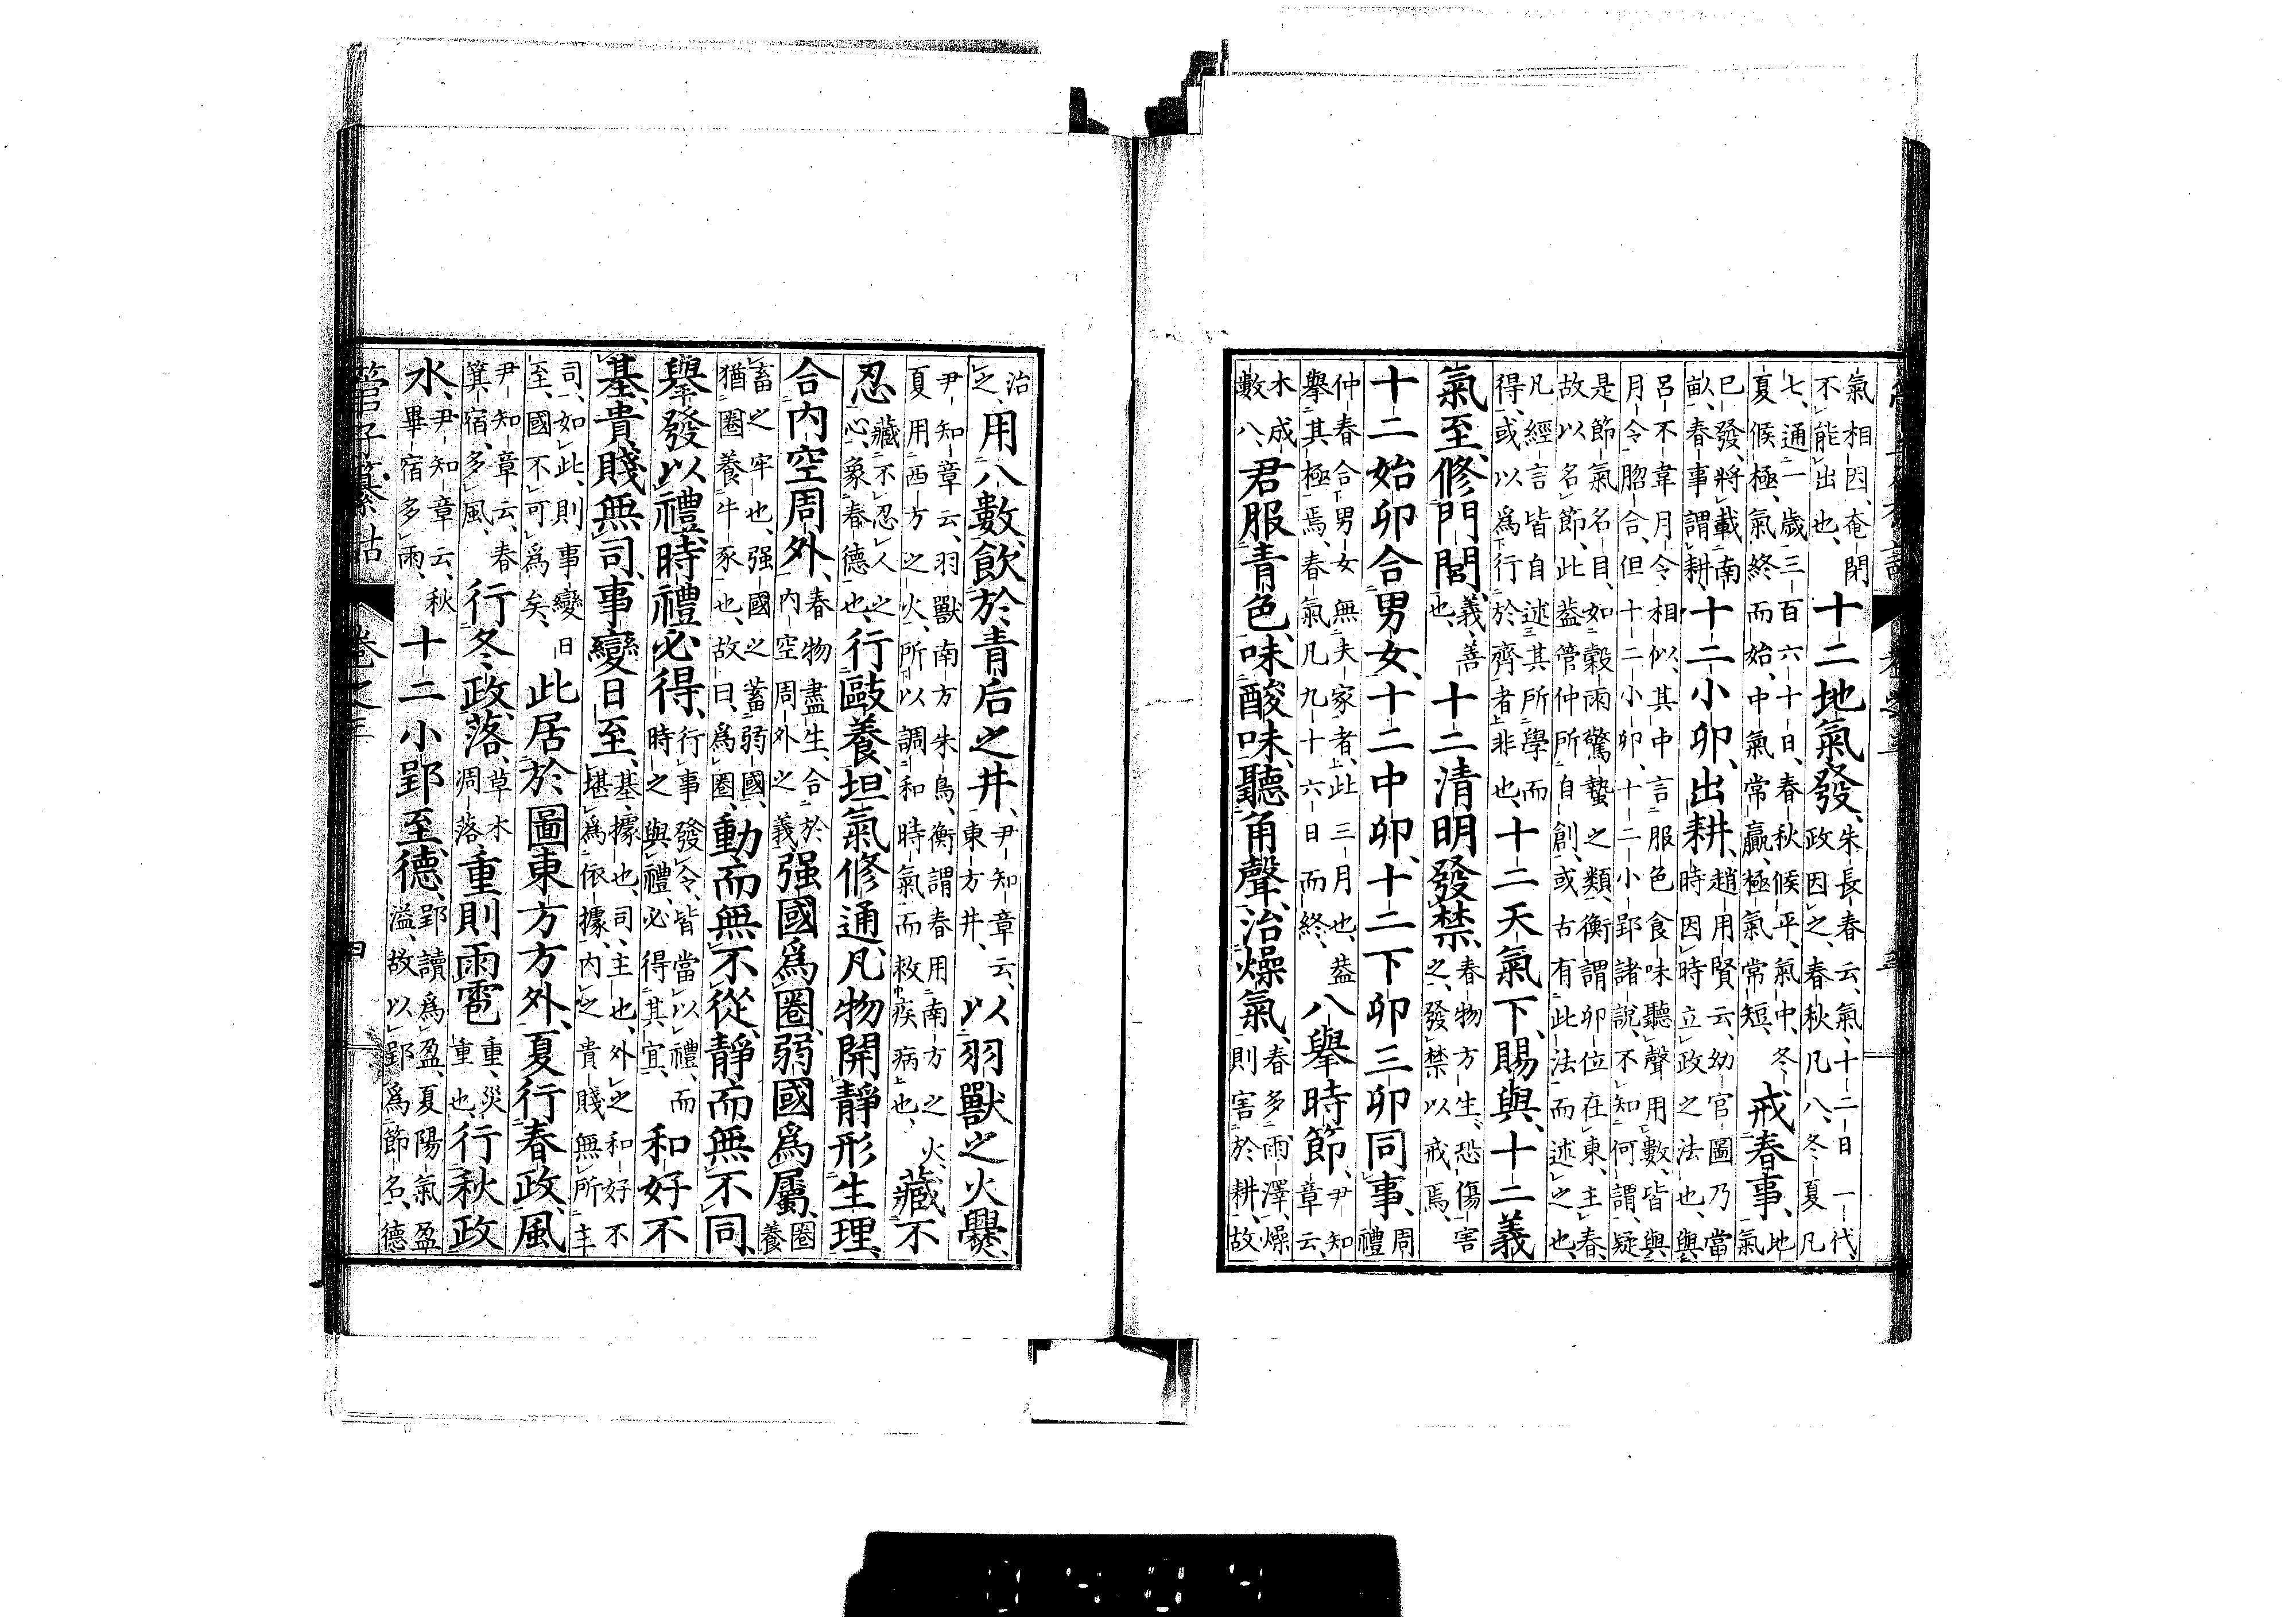 氣相因、奄閉
不能出也、
十二地氣發、
朱長春云、氣十二日一代、
政因之、春秋凡八、冬夏凡
七、通一歲三百六十日、春秋候平、氣中、冬
夏候極、氣終而始、中氣常贏、極氣常短、
戒春事、
地
氣
已發、將載南
畝、春事謂耕、
十二小卯、出耕、
趙用賢云、幼官圖乃當
時因時立政之法也、與
呂不韋月令相似、其中言服色食味聽聲用數、皆與
月令脗合、但十二小卯、十二小郢諸說、不知何謂、疑
是節氣名目、如穀雨驚蟄之類、衡謂卯位在東、主春、
故以名節、此葢管仲所自創、或古有此法而述之也、
凡經言皆自述其所學而
得、或以爲行於齊者非也、
十二天氣下、賜與、十二義
氣至、修門閭、
義、善
也、
十二清明發禁、
春物方生、恐傷害
之、發禁以戒焉、
十二始卯合男女、十二中卯、十二下卯三卯同事、
周
禮
仲春合男女無夫家者、此三月也、葢
擧其極焉、春氣凡九十六日而終、
八擧時節、
尹知
章云、
木成
數八、
君服青色、味酸味、聽角聲、治燥氣、
春多雨澤、燥
則害於耕、故
治
之、
用八數、飲於青后之井、
尹知章云、
東方井、
以羽獸之火爨、
尹知章云、羽獸南方朱鳥、衡謂春用南方之火、
夏用西方之火、所以調和時氣而救疾病也、
藏不
忍、
藏不忍人之
心、象春德也、
行敺養、坦氣修通、凡物開靜形生理、
合內空周外、
春物盡生、合於
內空周外之義、
强國爲圈、弱國爲屬、
圈
養
畜之牢也、强國之蓄弱國、
猶圈養牛豕也、故曰、爲圈、
動而無不從、靜而無不同、
擧發以禮、時禮必得、
行事發令、皆當以禮、而
時之與禮、必得其宜、
和好不
基、貴賤無司、事變日至、
基、據也、司、主也、外之和好不
堪爲依據、內之貴賤無所主
司、如此、則事變日
至、國不可爲矣、
此居於圖東方方外、夏行春政、風
尹知章云、春
箕宿、多風、
行冬政、落、
草木
凋落、
重則雨雹、
重、災
重也、
行秋政
水、
尹知章云、秋
畢宿多雨、
十二小郢至德、
郢讀爲盈、夏陽氣盈
溢、故以郢爲節名、德
管子纂詁
卷之三